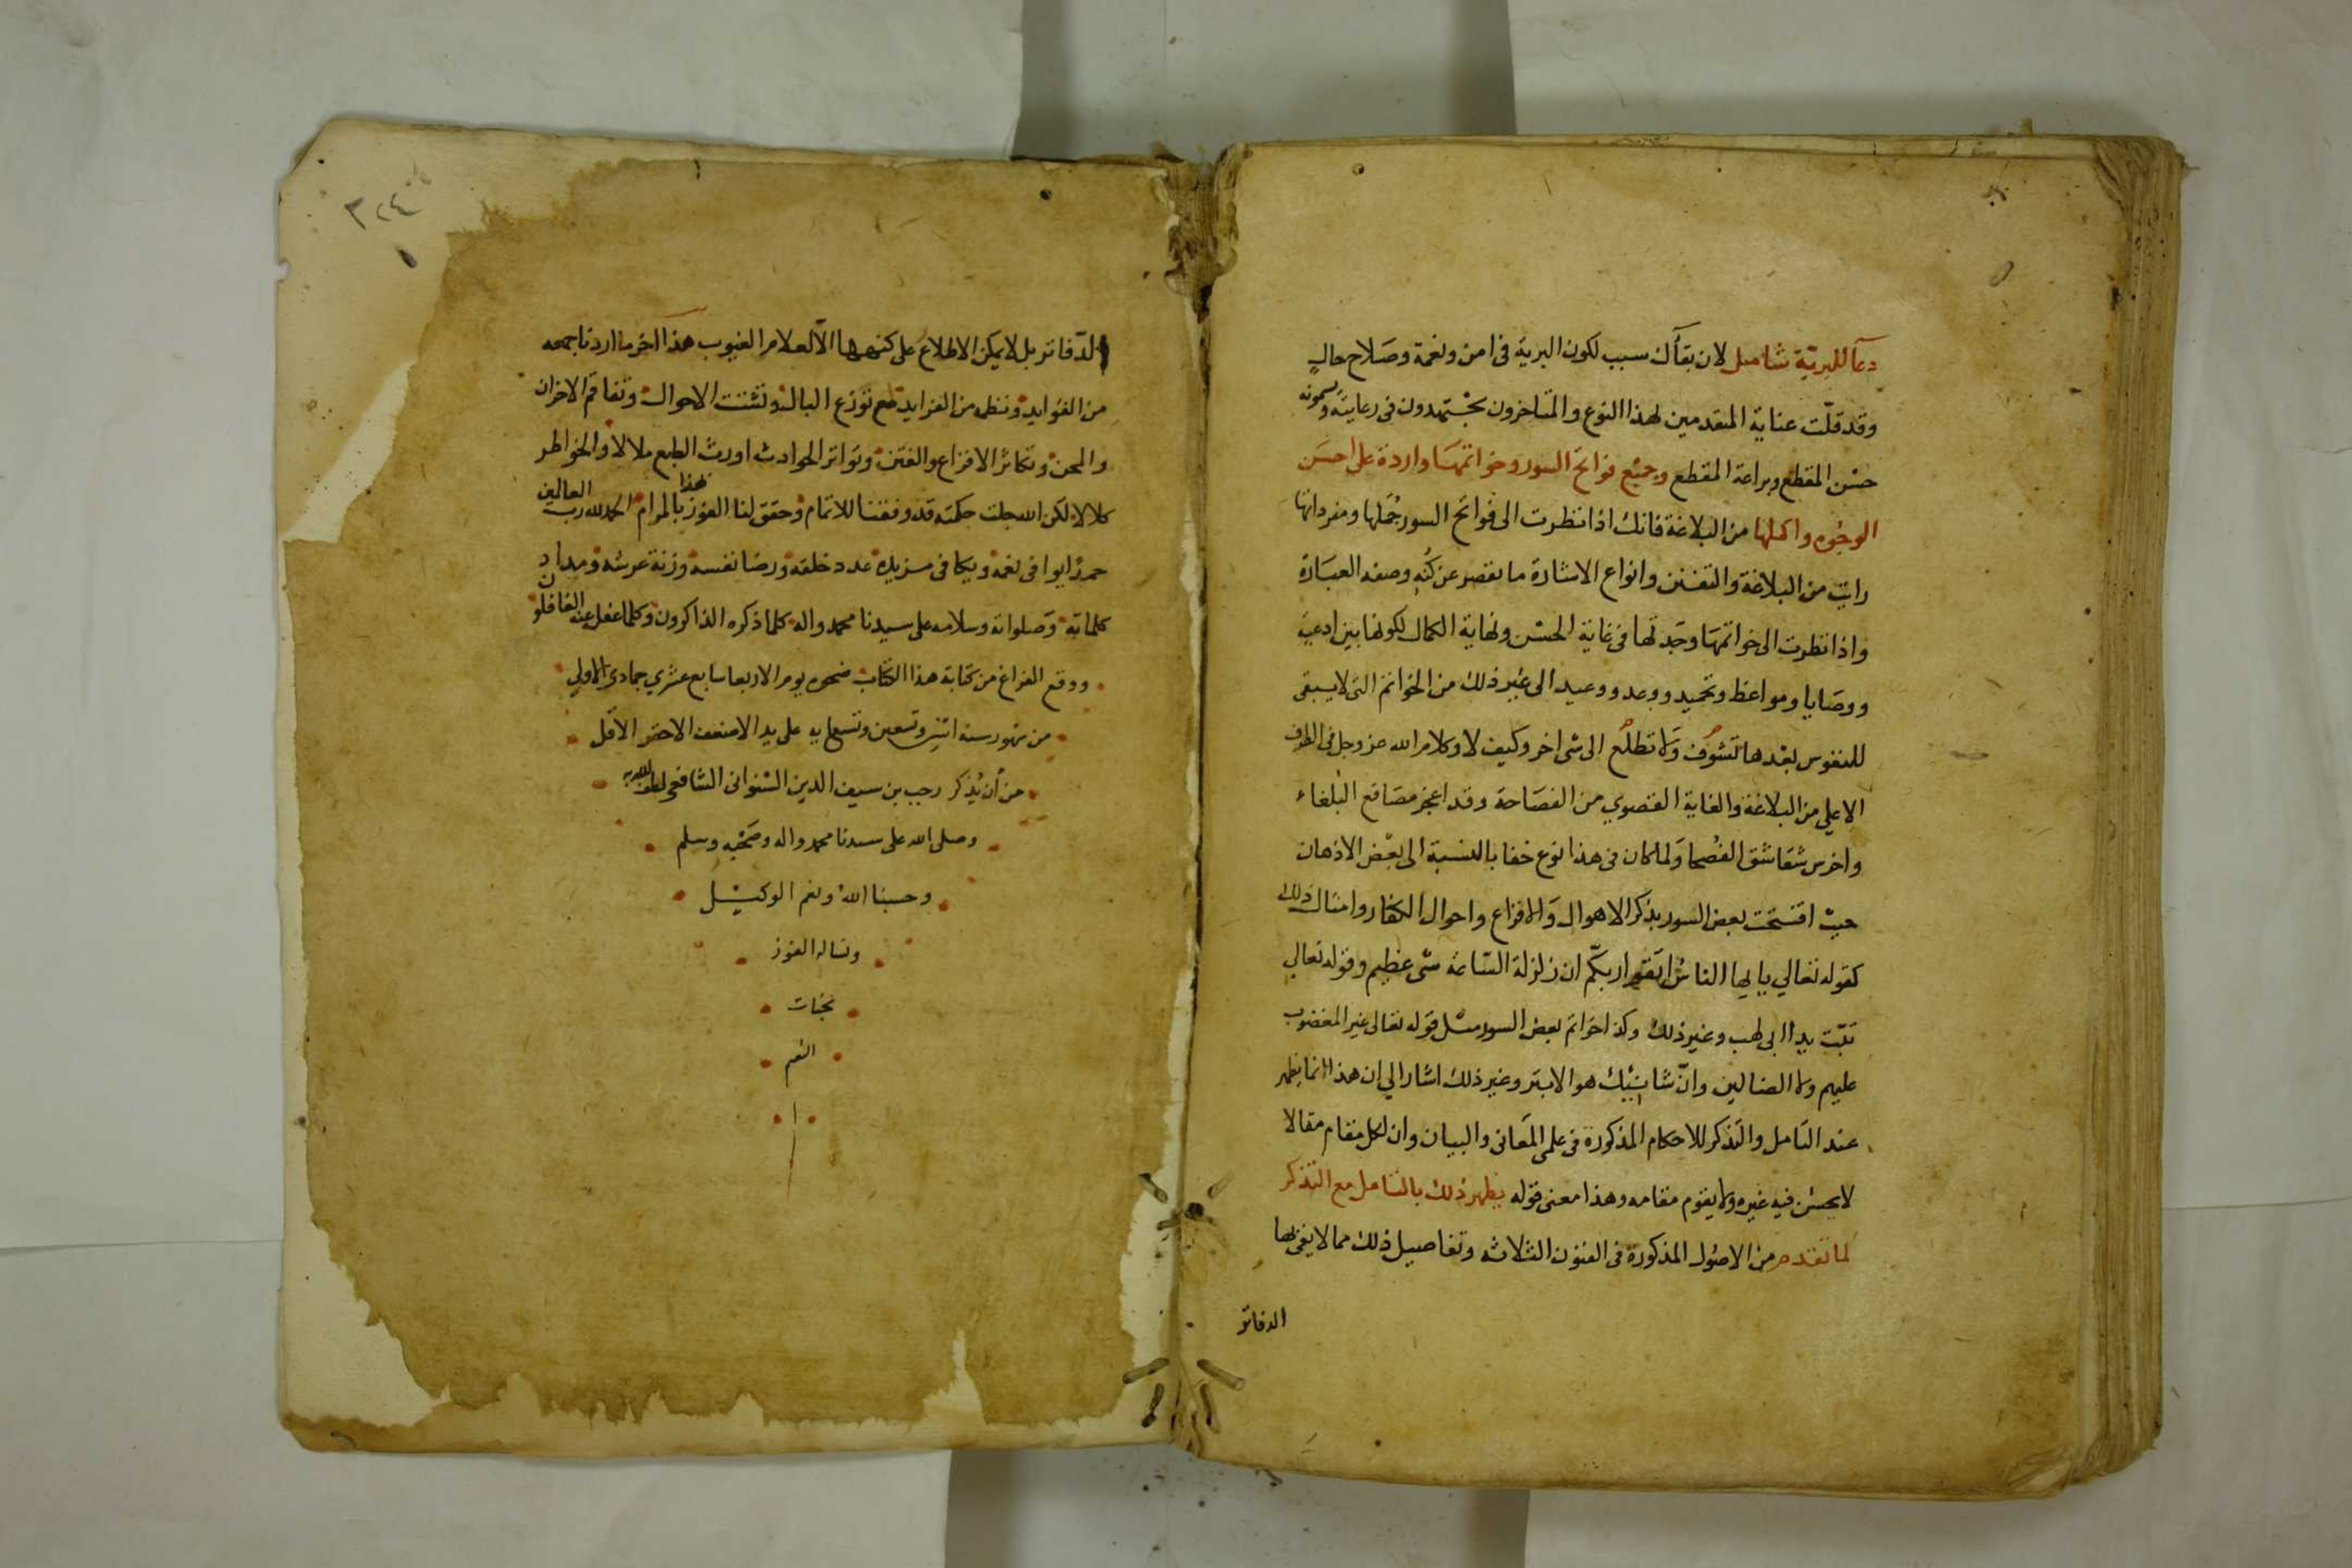 دعآ للبرية شامل لان بقآك سبب لكون البرية فى امن ونعمة وصلاح حال
وقد قلّت عناية المتقدمين لهذا النوع والمتاخرون يجتهدون فى رعايته ويسمونه
حسن المقطع وبراعة المقطع وجميع فواتح السور وخواتمها واردة على احسن
الوجوه واكملها من البلاغة فانك اذا نظرت الى فواتح السور جُملها ومفرداتها
رايت من البلاغة والتفنن وانواع الاشارة ما يقصر عن كُنه وصفه العبارة
واذا نظرت الى خواتمها وجدتها فى غاية الحسن ونهاية الكمال لكونها بين ادعية
ووصايا ومواعظ وتحميد ووعد ووعيد الى غير ذلك من الخواتم التى لا يبقى
للنفوس بعدها تشوّف ولا تطلّع الى شى اخر وكيف لا وكلام الله عز وجل فى الطرف
الاعلي من البلاغة والغاية القصوي من الفصاحة وقد اعجز مصاقع البلغاء
واخرس شقاشق الفصحا ولما كان فى هذا نوع خفا بالنسبة الى بعض الاذهان
حيث افتتحت بعض السور بذكر الاهوال والافزاع واحوال الكفار وامثال ذلك
كقوله تعالي يايها الناس اتقوا ربكم ان زلزلة الساعة شى عظيم وقوله تعالي
تبّت يدا ابى لهب وغير ذلك وكذا خواتم بعض السور مثل قوله تعالى غير المغضوب
عليهم ولا الضالين وانّ شانئيك هو الابتر وغير ذلك اشار الي ان هذا انما يظهر
عند التامل والتذكر للاحكام المذكورة فى علمى المعانى والبيان وان لكل مقام مقالا
لا يحسن فيه غيره ولا يقوم مقامه وهذا معنى قوله يظهر ذلك بالتامل مع التذكر
لما تقدم من الاصول المذكورة فى الفنون الثلاثه وتفاصيل ذلك مما لا يفى بها
الدفاتر
٣٢٤
الدّفاتر بل لا يمكن الاطلاع على كنهها الاّ لعلام الغيوب هذا اخر ما اردنا جمعه
من الفوايد ونظم من الفرايد مع توزع البال وتشتت الاحوال وتفاقم الاحزان
والمحن وتكاثر الافزاع والفتن وتواتر الحوادث اورث الطبع ملالا والخواطر
كلالا لكن الله جلت حكمته قد وفقنا للاتمام وحقق لنا الفوز بهذا المرام الحمد لله رب العالمين
حمدًا يوافى نعمه ويكافى مزيده عدد خلقه ورضا نفسه وزنة عرشه ومداد
كلماته وصلواته وسلامه على سيدنا محمد واله كلما ذكره الذاكرون وكلما غفل عنه الغافلون
ووقع الفراغ من كتابة هذا الكتاب ضحوه يوم الاربعا سابع عشري جمادى الاولي
من شهور سنة اثنين وتسعين وتسعمايه على يد الاضعف الاحقر الاقل
من أن يُذكر رجب بن سيف الدين الشنوانى الشافعى
وصلى الله على سيدنا محمد واله وصحبه وسلم
وحسبنا الله ونعم الوكيل
ونساله الفوز
بجنات
النعيم